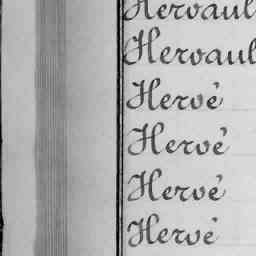 Hervaul
Hervaul
Hervé
Hervé
Hervé
Hervé